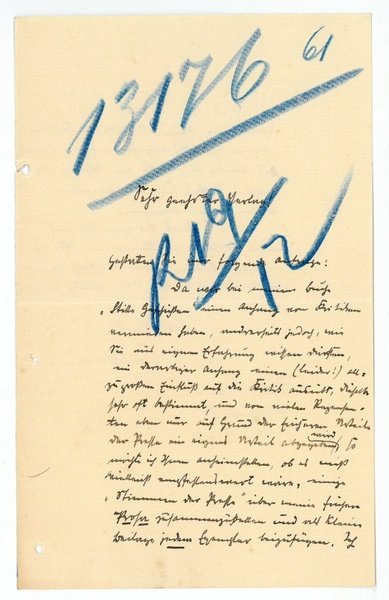 61
13176
Sehr geehrter Verlag!
R 19/12
Gestatten Sie mir folgende Anfrage:
Da wir bei meinem Buche
„Stille Geschichten" einen Anhang von Kritiken
vermieden haben, andererseits jedoch, wie
Sie aus eigener Erfahrung wissen dürften,
ein derartiger Anhang einen (leider!) all-
zu großen Einfluß auf die Kritik ausübt, dieselbe
sehr oft bestimmt, und von vielen Rezensen-
ten aber nur auf Grund der früheren Urteile
der Presse ein eigenes Urteil abgegeben wird, so
möchte ich Ihnen anheimstellen, ob es nicht
vielleicht empfehlenswert wäre, einige
„Stimmen der Presse" über meine frühere
Prosa zusammenzustellen und als kleine
Beilage jedem Exemplar beizufügen. Ich